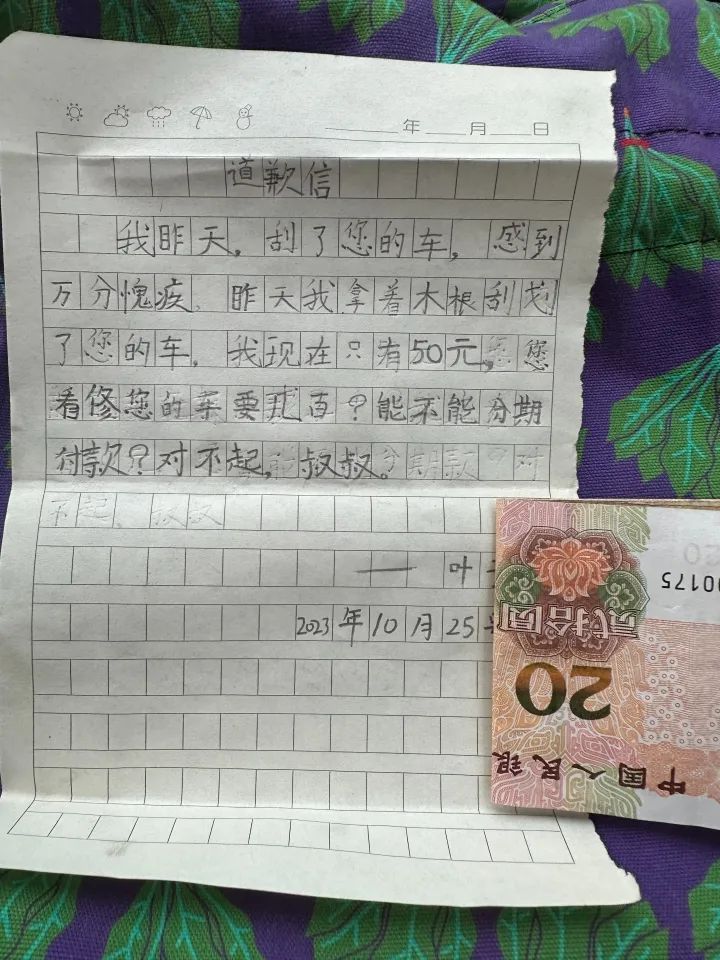 年 月 日
道歉信
我昨天，刮了您的车，感到
万分愧疚。昨天我拿着木根刮划
了您的车。我现在只有50元，您
看修您的车要百？能不能分期
付款？对不起，叔叔。分期款？对
不起，叔叔
—— 叶
2023年10月25
00175
贰拾圆
20
中国人民银